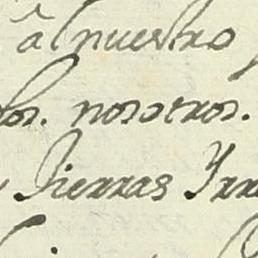 âl nuestro
los. nosotros.
Tierras Yrr